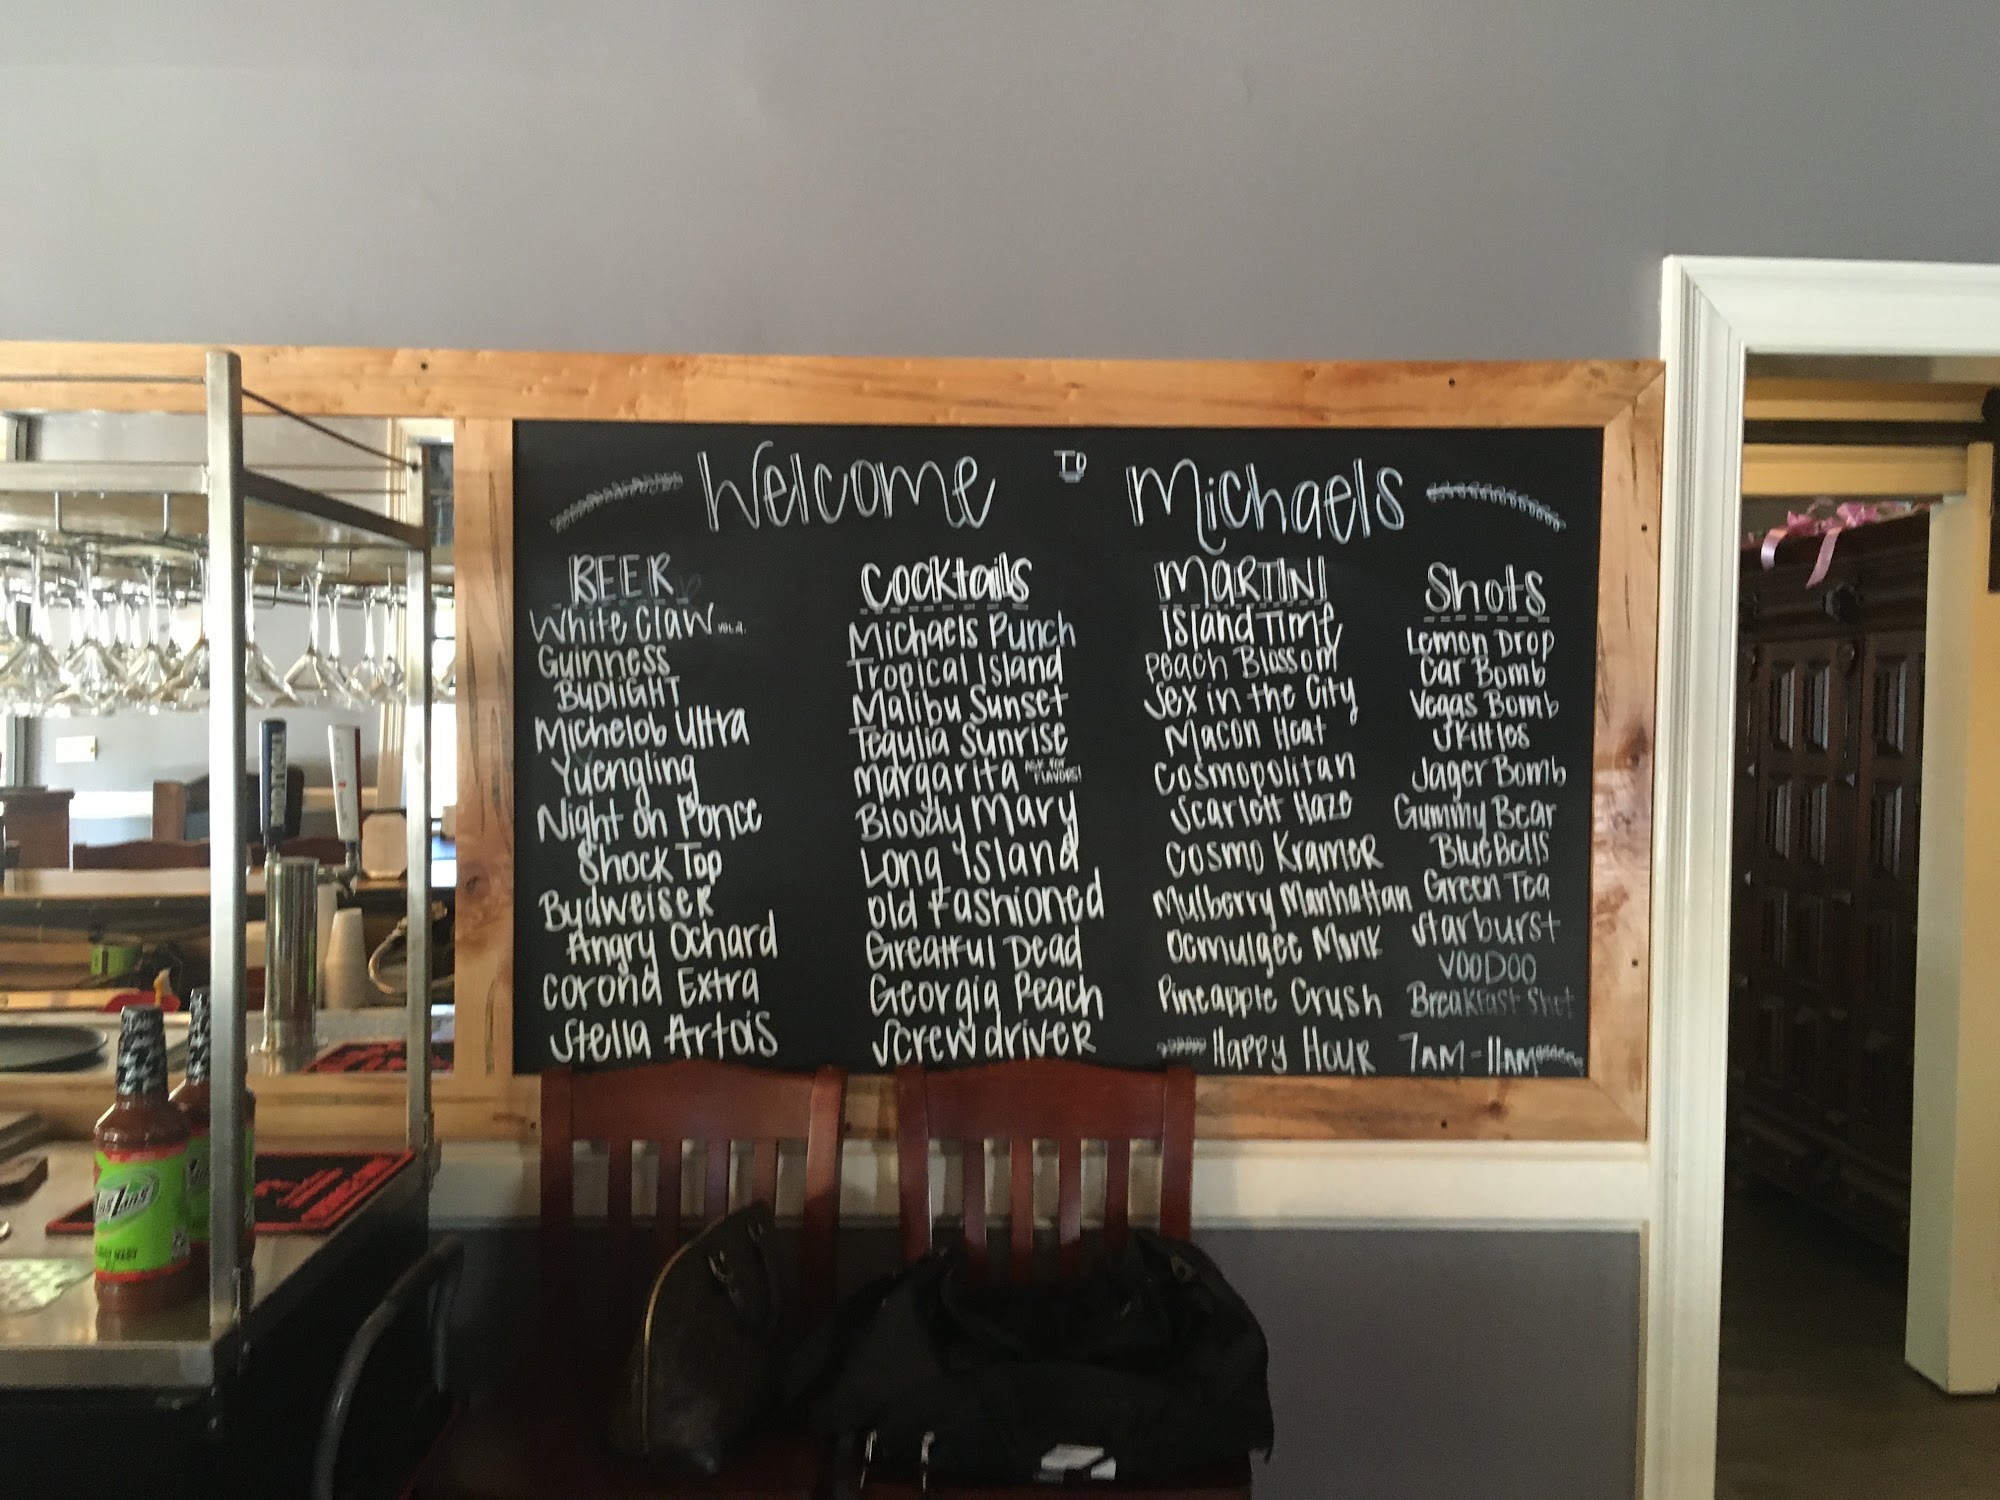 Welcome TO Michaels
BEER
White Claw VOL. 2.
Guinness
BUDLIGHT
Michelob Ultra
Yuengling
Night on Ponce
Shock Top
Budweiser
Angry Ochard
Corona Extra
Stella Artois
Cocktails
Michaels Punch
Tropical Island
Malibu Sunset
Tequlia Sunrise
Margarita ASK FOR FLAVORS!
Bloody Mary
Long Island
Old Fashioned
Greatful Dead
Georgia Peach
Screwdriver
MARTINI
Island Time
Peach Blossom
Sex in the City
Macon Heat
Cosmopolitan
Scarlett Haze
Cosmo Kramer
Mulberry Manhattan
Ocmulgee Monk
Pineapple Crush
Shots
Lemon Drop
Car Bomb
Vegas Bomb
Skittles
Jager Bomb
Gummy Bear
Blue Bells
Green Tea
Starburst
VOODOO
Breakfast Shot
Happy Hour 7AM-11AM